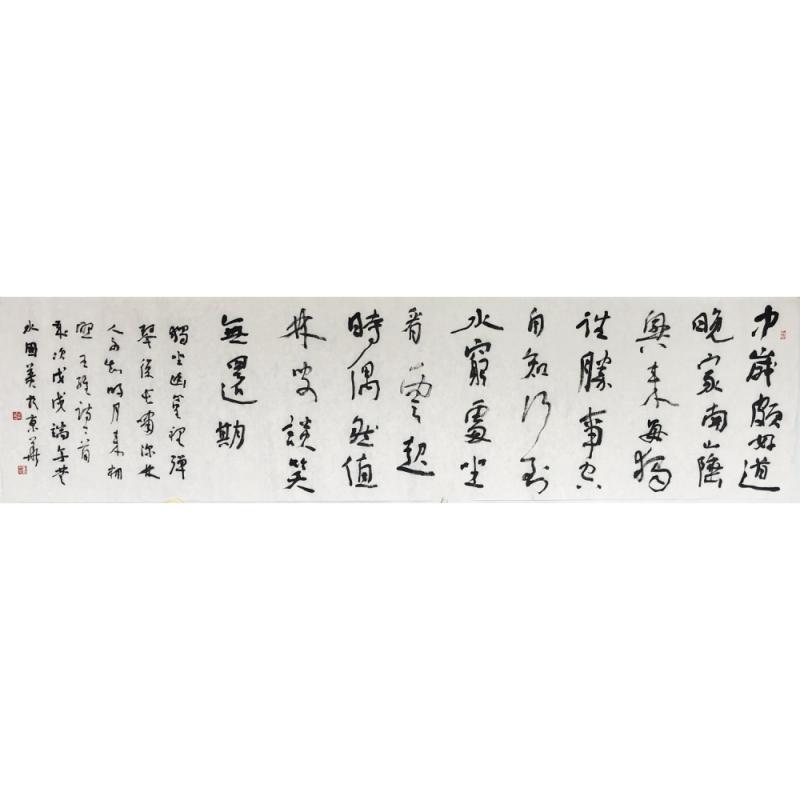 中歲頗好道
晚家南山陲
興來每獨
往勝事空
自知行到
水窮處坐
看雲起
時偶然值
林叟談笑
無還期
獨坐幽篁裡彈
琴復長嘯深林
人不知明月來相
照王維詩二首
歲次戊戌端午
於京華